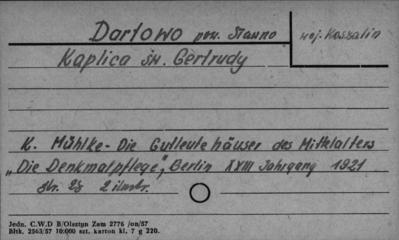 Darłowo pow. Sławno woj. Koszalin
Kaplica św. Gertrudy
K. Mühlke - Die Gutleutehäuser des Mittelalters
„Die Denkmalpflege", Berlin XXIII Jahrgang 1921
str. 28 2 ilustr.
Jedn. C.W.D B/Olsztyn Zam 2776 /on/57
Bltk. 2563/57 10:000 szt. karton kl. 7 g 220.